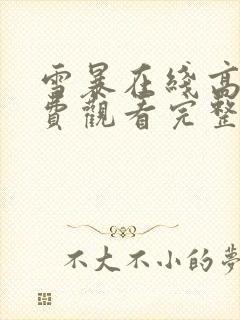 雪暴在綫高
費觀看完整
不大不小的夢